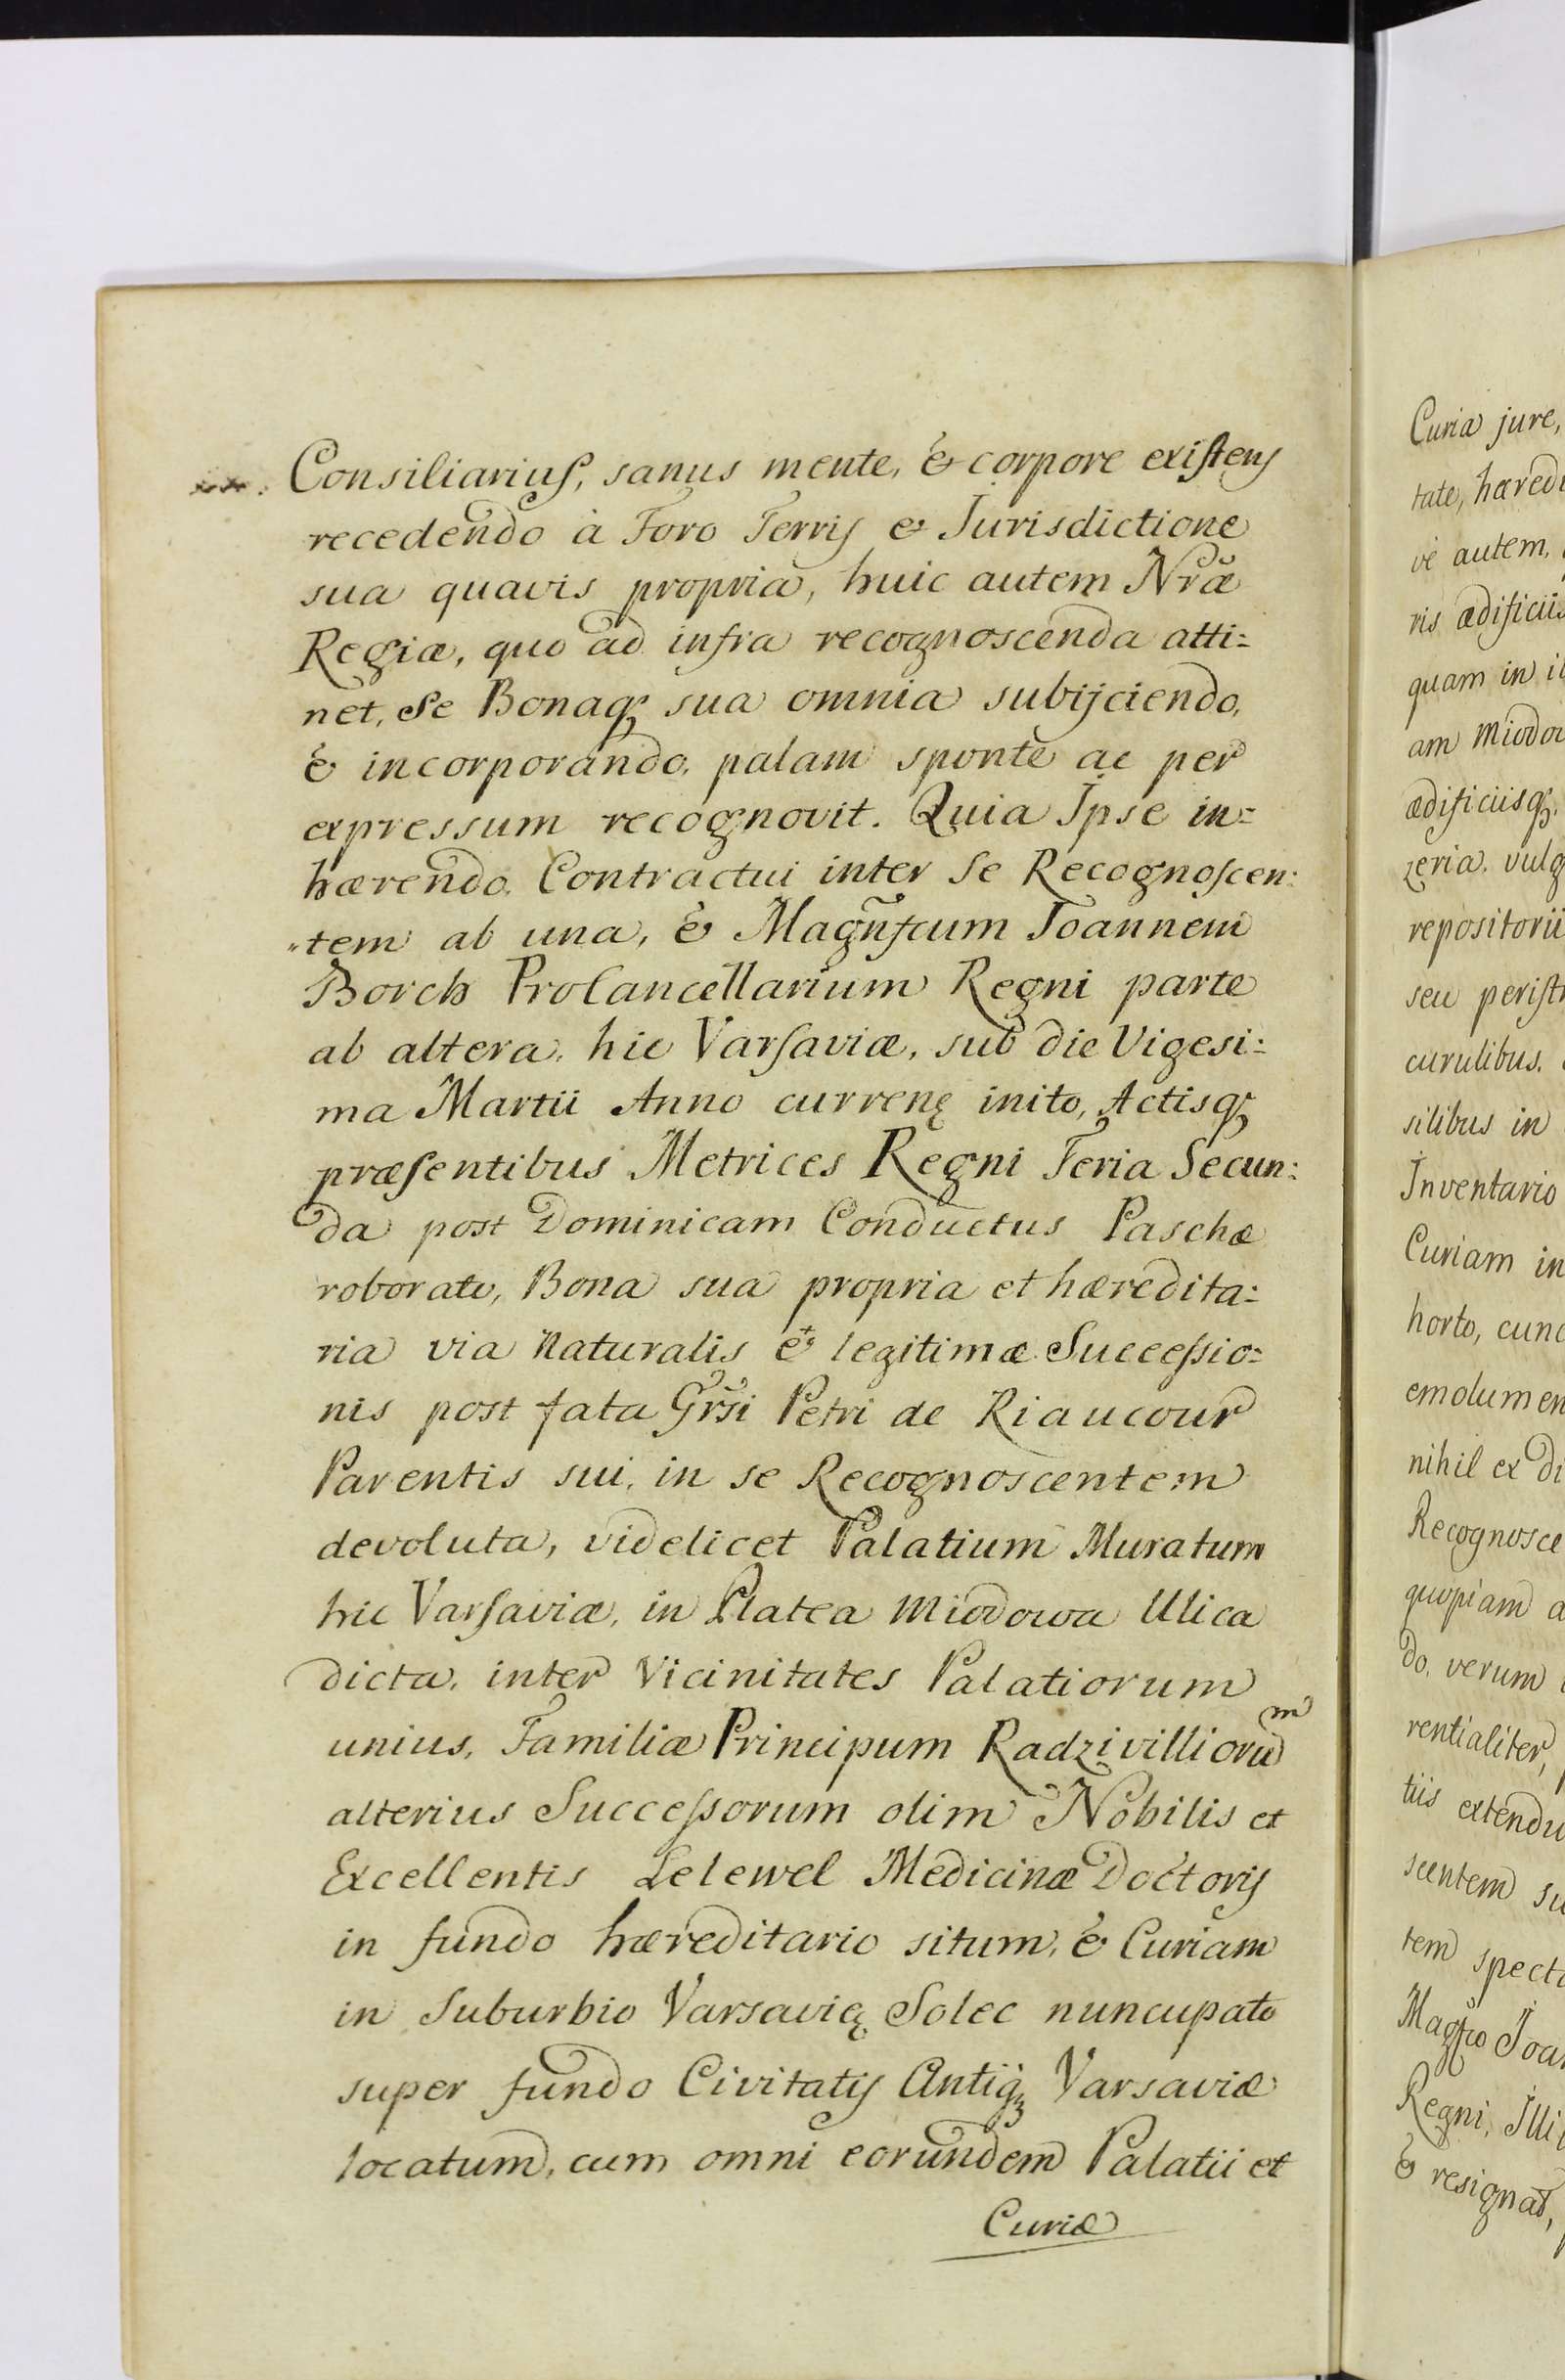 Consiliarius, sanus mente, & corpore existens
recedendo à Foro Terris & Jurisdictione
sua quavis propria, huic autem Nræ
Regiæ, quo ad infra recognoscenda atti=
net, se Bonaq3 sua omnia subijciendo,
& incorporando, palam sponte ac per
expressum recognovit. Quia Ipse in=
hærendo Contractui inter se Recognoscen:
tem ab una, & Magnfcum Joannem
Borch ProCancellarium Regni parte
ab altera, hic Varsaviæ, sub die Vigesi:
ma Martii Anno curren inito, Actisq3
præsentibus Metrices Regni Feria Secun:
da post Dominicam Conductus Paschæ
roborato, Bona sua propria et hæredita:
ria via naturalis & legitimæ Successio=
nis post fata Grsi Petri de Riaucour
Parentis sui, in se Recognoscentem
devoluta, videlicet Palatium Muratum
hic Varsaviæ, in Platea Miodowa Ulica
dicta, inter Vicinitates Palatiorum
unius, Familiæ Principum Radzivilliorum
alterius Successorum olim Nobilis et
Excellentis Lelewel Medicinæ Doctoris
in fundo hæreditario situm, & Curiam
in Suburbio Varsavię Solec nuncupato
super fundo Civitatis Antiq3 Varsaviæ
locatum, cum omni eorundem Palatii et
Curiæ
Curia jure,
tate, hæredi
vè autem,
ris ædificiis
quam in
am Miodo
ædificiisq3,
zeria vulg
repositorii
seu perist
curulibus.
silibus in
Inventario
Curiam in
horto, cunc
emolumen
nihil ex di
Recognosce
quopiam a
do, verum
rentialiter,
tiis extendu
scentem su
tem specta
Magfco Joan
Regni, Illi
& resignat,